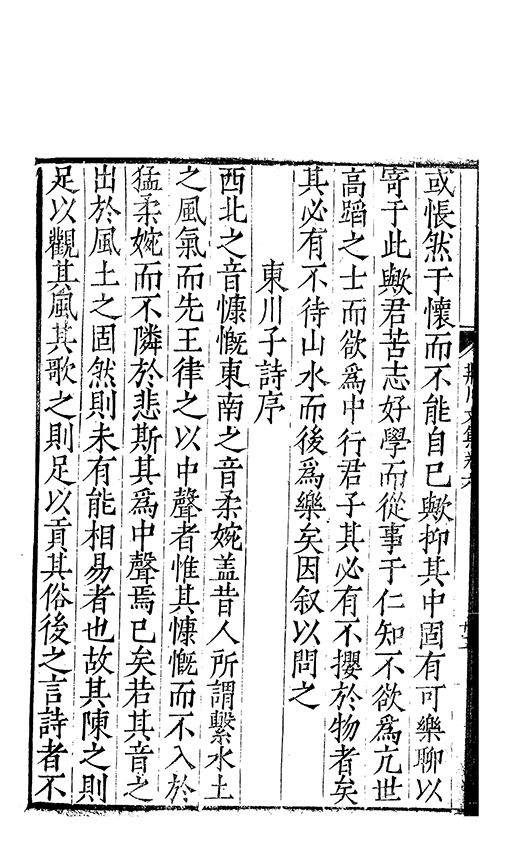 或悵然于懷而不能自已歟抑其中固有可樂聊以
寄于此歟君苦志好學而從事于仁知不欲爲亢世
高蹈之士而欲爲中行君子其必有不攖於物者矣
其必有不待山水而後爲樂矣因叙以問之
東川子詩序
西北之音慷慨東南之音柔婉盖昔人所謂繫水土
之風氣而先王律之以中聲者惟其慷慨而不入於
猛柔婉而不隣於悲斯其爲中聲焉已矣若其音之
出於風土之固然則未有能相易者也故其陳之則
足以觀其風其歌之則足以貢其俗後之言詩者不